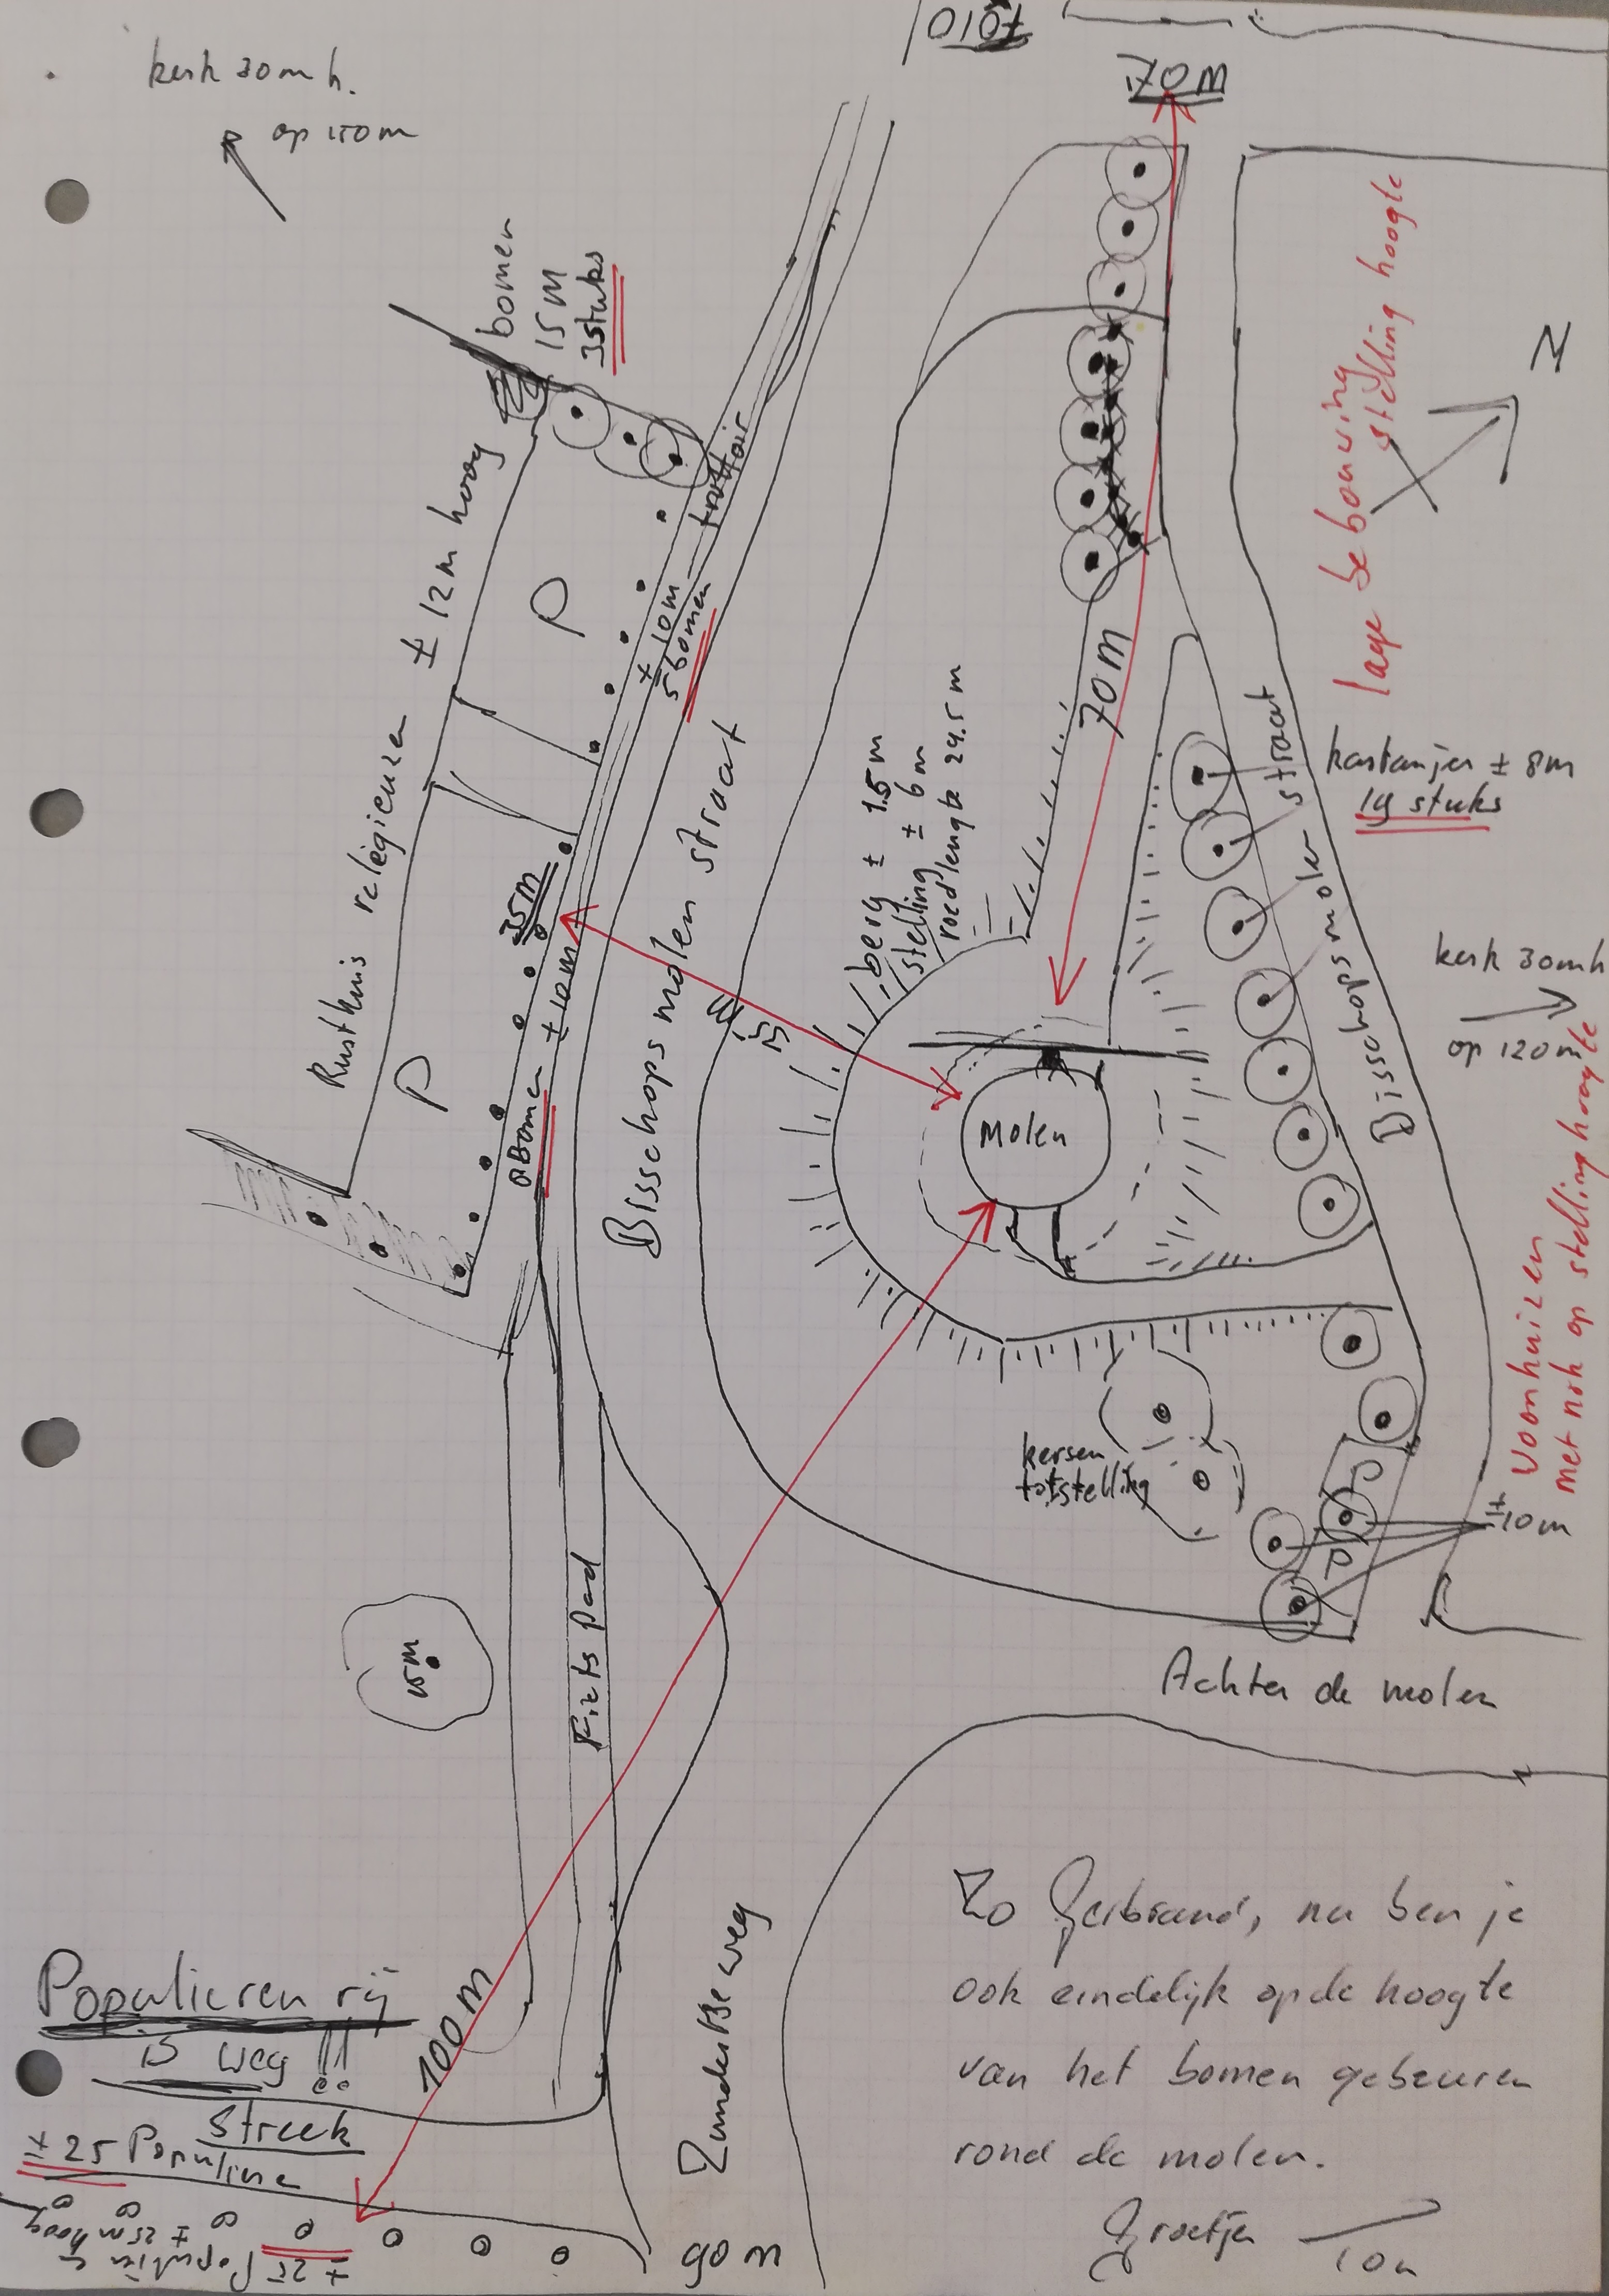 kerk 30m h.
op 150m
FOTO
70m
bomen
15m
3stuks
± 12m hoog
P
trottoir
± 10m
5 bomen
N
lage bebouwing
stelling hoogte
Rusthuis religieuzen
P
35m
± 10m
Bomen
Bisschops molen straat
berg ± 1.5m
stelling ± 6m
roedlengte 24.5m
70m
kastanjes ± 8m
19 stuks
Bisschops molen straat
kerk 30mh
op 120m
Molen
woonhuizen
met nok op stellinghoogte
kersen
tot stelling
P
P
± 10m
Achter de molen
15m
Fiets Pad
100m
Zundertseweg
90m
Populieren rij
is weg !!
Streek
± 25 Populieren
± 25 Populieren
± 25m hoog
Zo Gerbrand, nu ben je
ook eindelijk op de hoogte
van het bomen gebeuren
rond de molen.
Groetjes